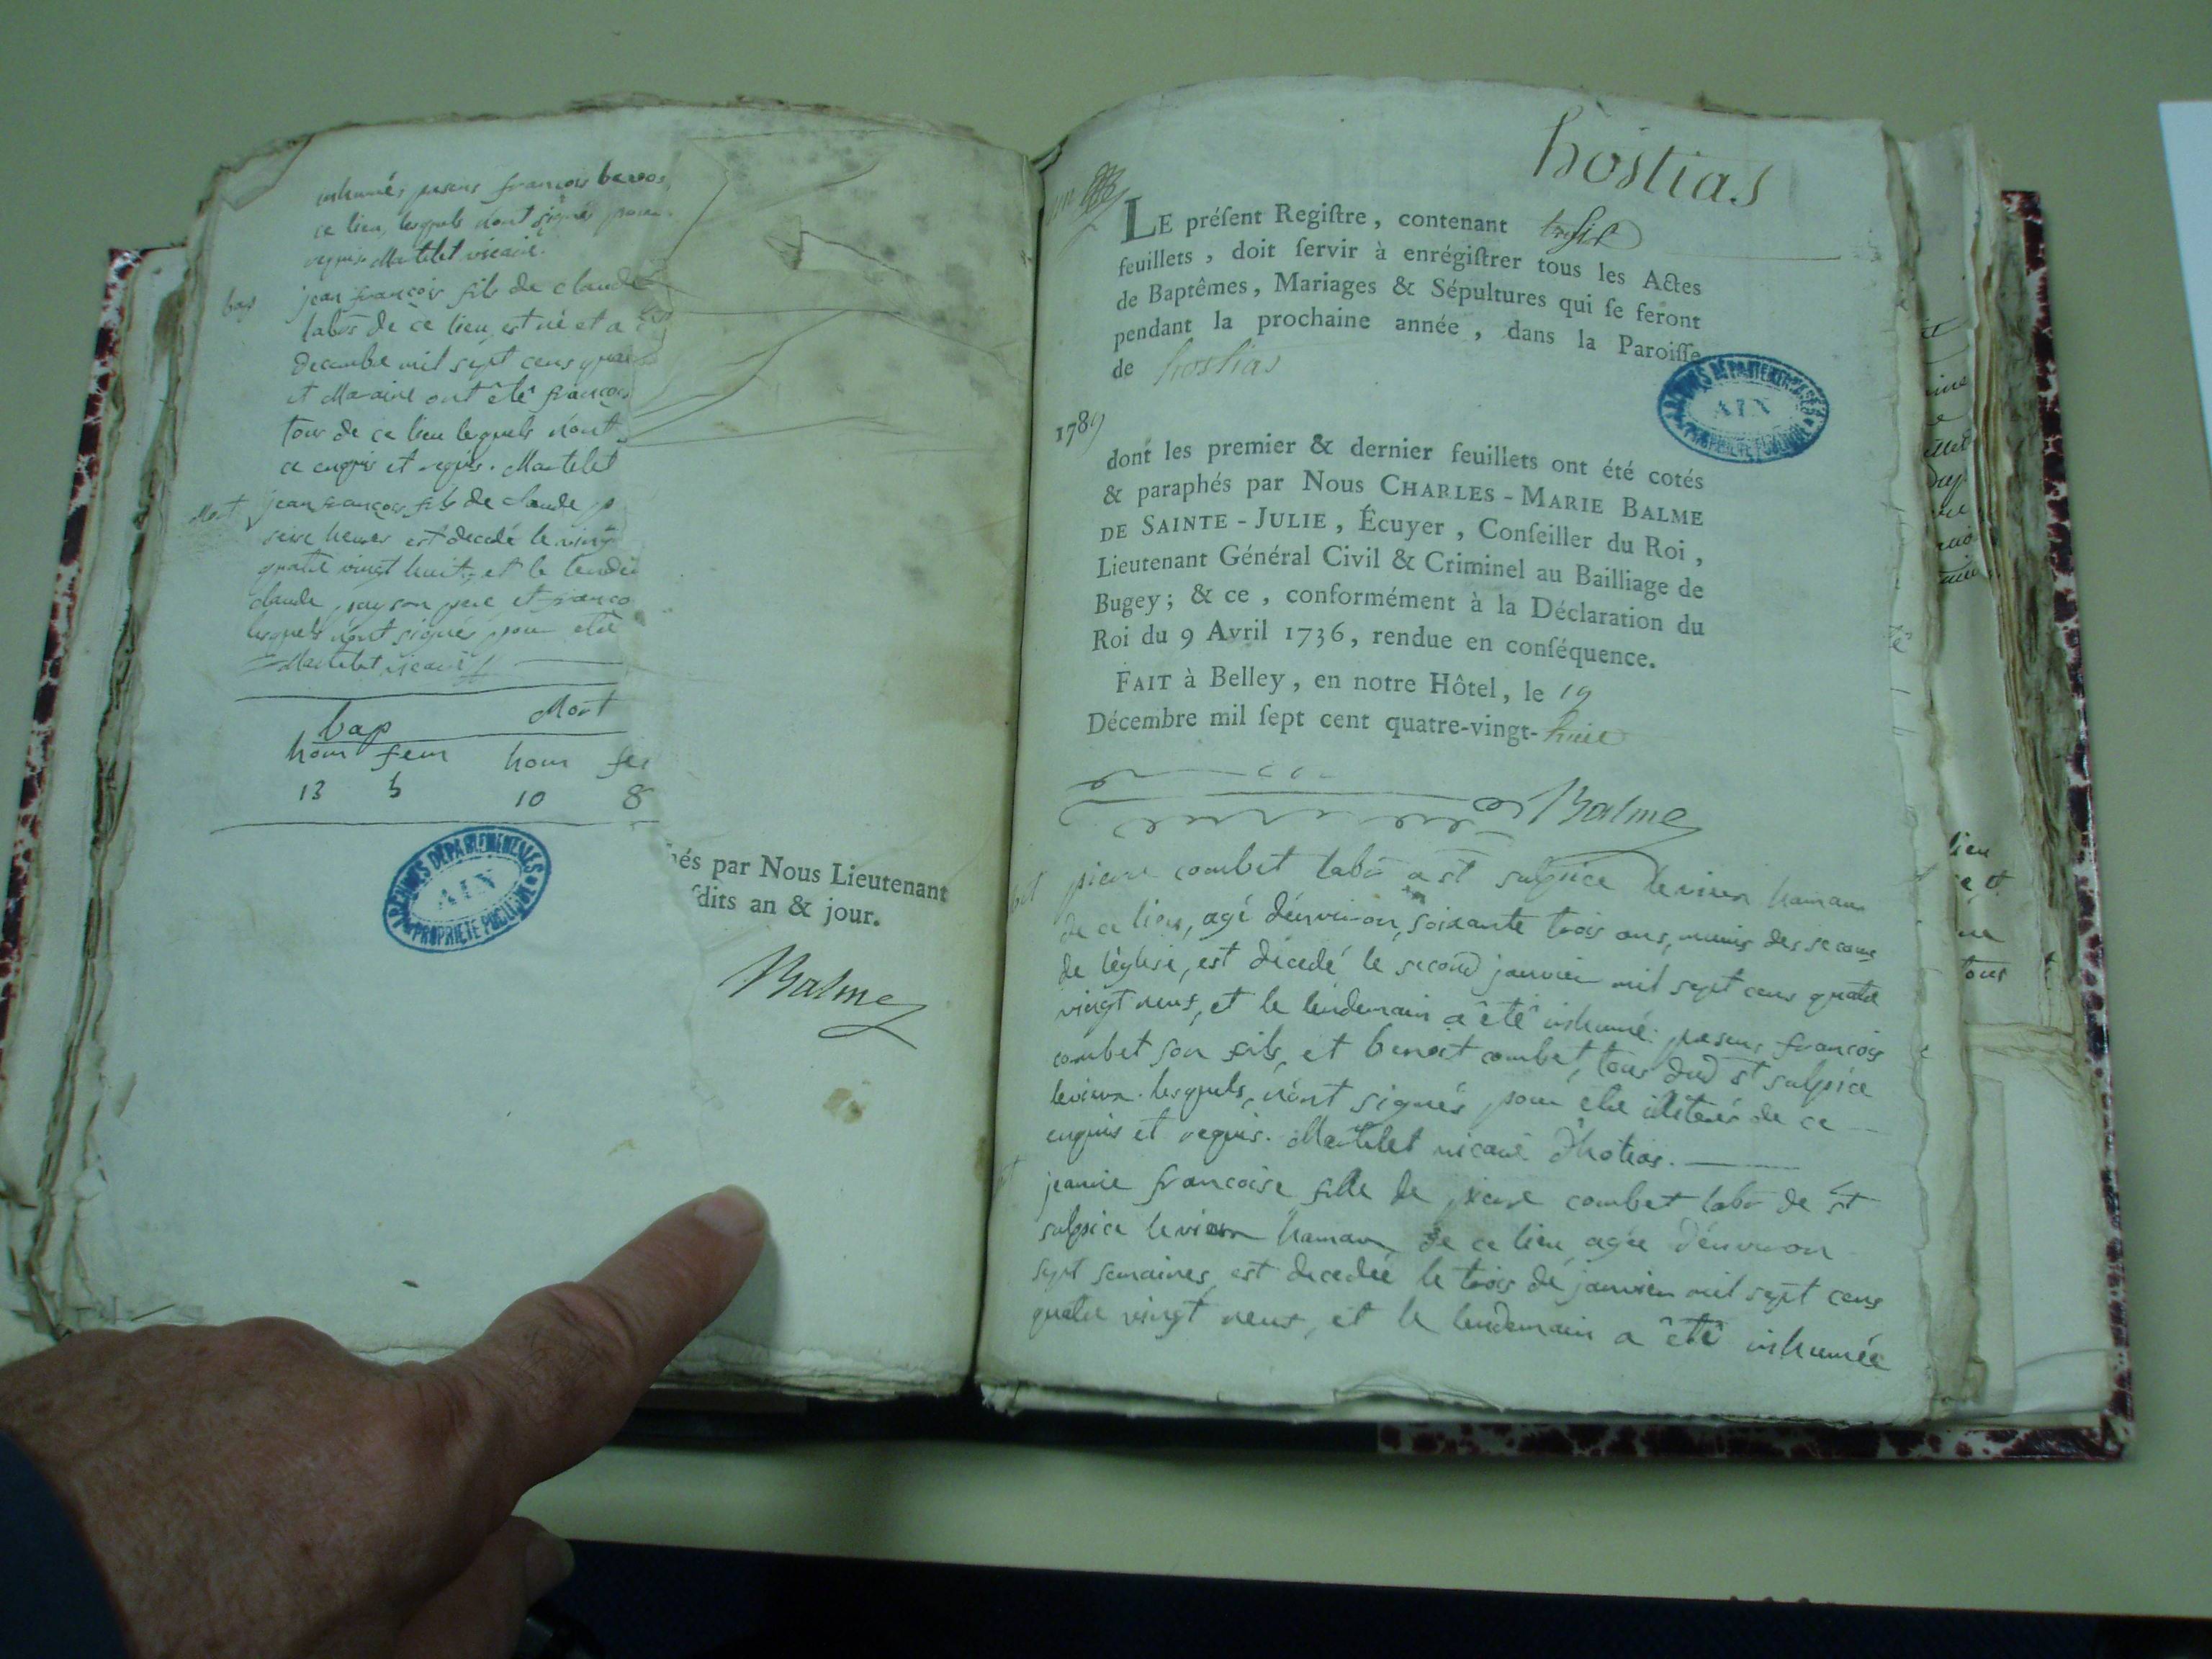 inhumés presens françois
ce lien, lesquels n'ont signés pour
requis. Martelet vicaire.
bap
jean françois fils de claude
labr de ce lieu, est né et a
decembre mil sept cens quatre
et Maraine ont êté françois
tous de ce lieu lesquels n'ont
ce enquis et requis. Martelet
Mort
jean françois fils de claude
seise heures est decedé le vingt
quatre vingt huit, et le lendem
claude son pere et franço
lesquels n'ont signés pour etre
Martelet vicaire
bap Mort
hom fem hom fe
13 5 10 8
ARCHIVES DÉPARTEMENTALES
AIN
PROPRIÉTÉ PUBLIQUE
hés par Nous Lieutenant
ſdits an & jour.
Balme
hostias
LE préſent Regiſtre, contenant
feuillets, doit ſervir à enrégiſtrer tous les Actes
de Baptêmes, Mariages & Sépultures qui ſe feront
pendant la prochaine année, dans la Paroiſſe
de hostias
ARCHIVES DÉPARTEMENTALES
AIN
PROPRIÉTÉ PUBLIQUE
1789
dont les premier & dernier feuillets ont été cotés
& paraphés par Nous CHARLES-MARIE BALME
DE SAINTE-JULIE, Écuyer, Conſeiller du Roi,
Lieutenant Général Civil & Criminel au Bailliage de
Bugey; & ce, conformément à la Déclaration du
Roi du 9 Avril 1736, rendue en conſéquence.
FAIT à Belley, en notre Hôtel, le 19
Décembre mil ſept cent quatre-vingt-huit
Balme
pierre combet labr a st sulpice le vieux hamau
de ce lieu, agé d'environ soixante trois ans, munis des secours
de l'église, est decedé le second janvier mil sept cens quatre
vingt neuf, et le lendemain a êté inhumé: presens françois
combet son fils, et benoit combet, tous dud st sulpice
levieux. lesquels n'ont signés pour etre illiterés de ce
enquis et requis. Martelet vicaire d'hotias.
jeanne francoise fille de pierre combet labr de st
sulpice levieux hamau de ce lieu agée d'environ
sept semaines, est decedée le trois de janvier mil sept cens
quatre vingt neuf, et le lendemain a êtê inhumée